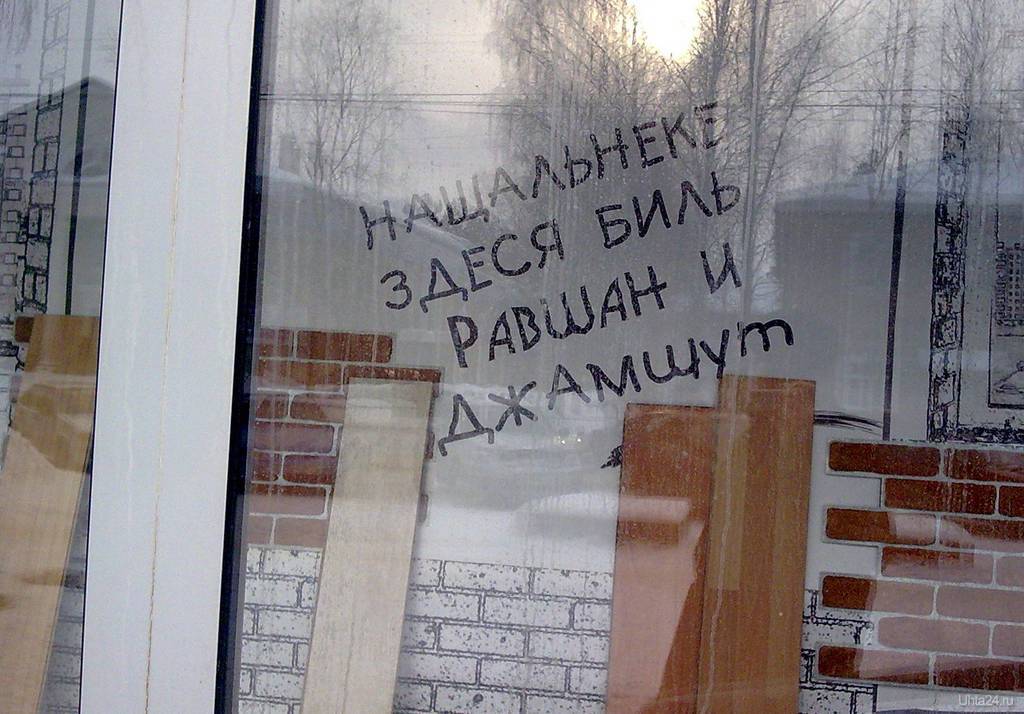 НАЩАЛЬНЕКЕ
ЗДЕСЯ БИЛЬ
РАВШАН И
ДЖАМШУТ
Uhta24.ru